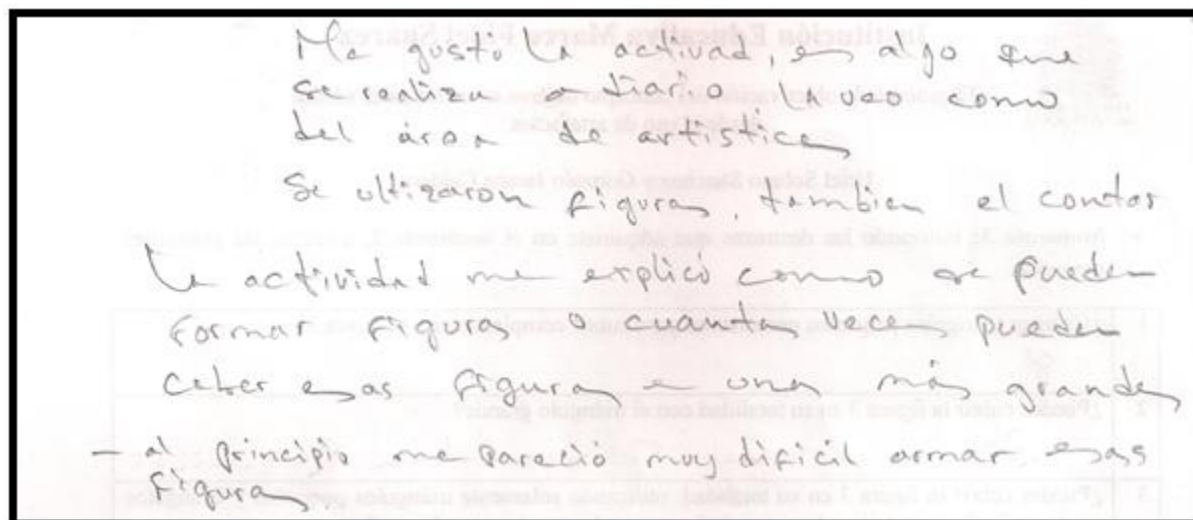 Me gustó la activad, es algo que
se realiza a diario la veo como
del área de artistica
Se ultizaron figuras, tambien el contar
La actividad me explicó como se pueden
Formar Figuras o cuantas veces pueden
caber esas figuras e una más grandes
- al principio me pareció muy dificil armar esas
figuras.